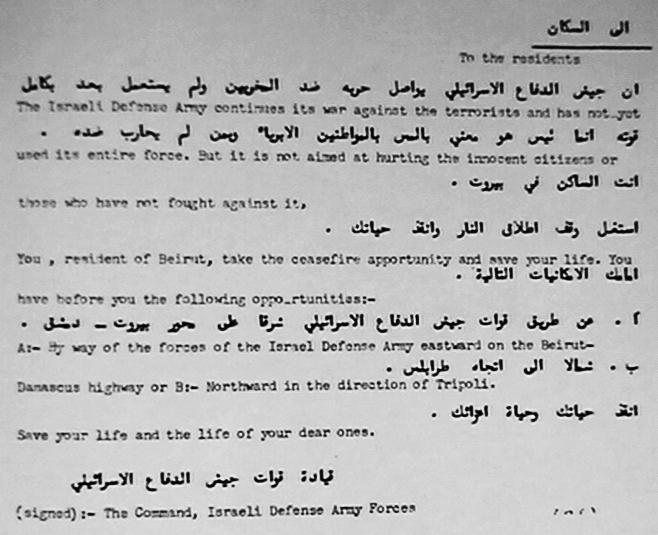 الى السكان
To the residents
ان جيش الدفاع الاسرائيلي يواصل حربه ضد المخربين ولم يستعمل بعد بكامل
The Israeli Defense Army continues its war against the terrorists and has not yet
قوته انما ليس هو معني بالمس بالمواطنين الابرياء وبمن لم يحارب ضده .
used its entire force. But it is not aimed at hurting the innocent citizens or
انت الساكن في بيروت .
those who have not fought against it,
استغل وقف اطلاق النار وانقذ حياتك .
You , resident of Beirut, take the ceasefire apportunity and save your life. You
امامك الامكانيات التالية .
have before you the following oppo_rtunities:-
آ . عن طريق قوات جيش الدفاع الاسرائيلي شرقا على محور بيروت _ دمشق .
A:- By way of the forces of the Israel Defense Army eastward on the Beirut-
ب . شمالا الى اتجاه طرابلس .
Damascus highway or B:- Northward in the direction of Tripoli.
انقذ حياتك وحياة اعزائك .
Save your life and the life of your dear ones.
قيادة قوات جيش الدفاع الاسرائيلي
(signed):- The Command, Israeli Defense Army Forces